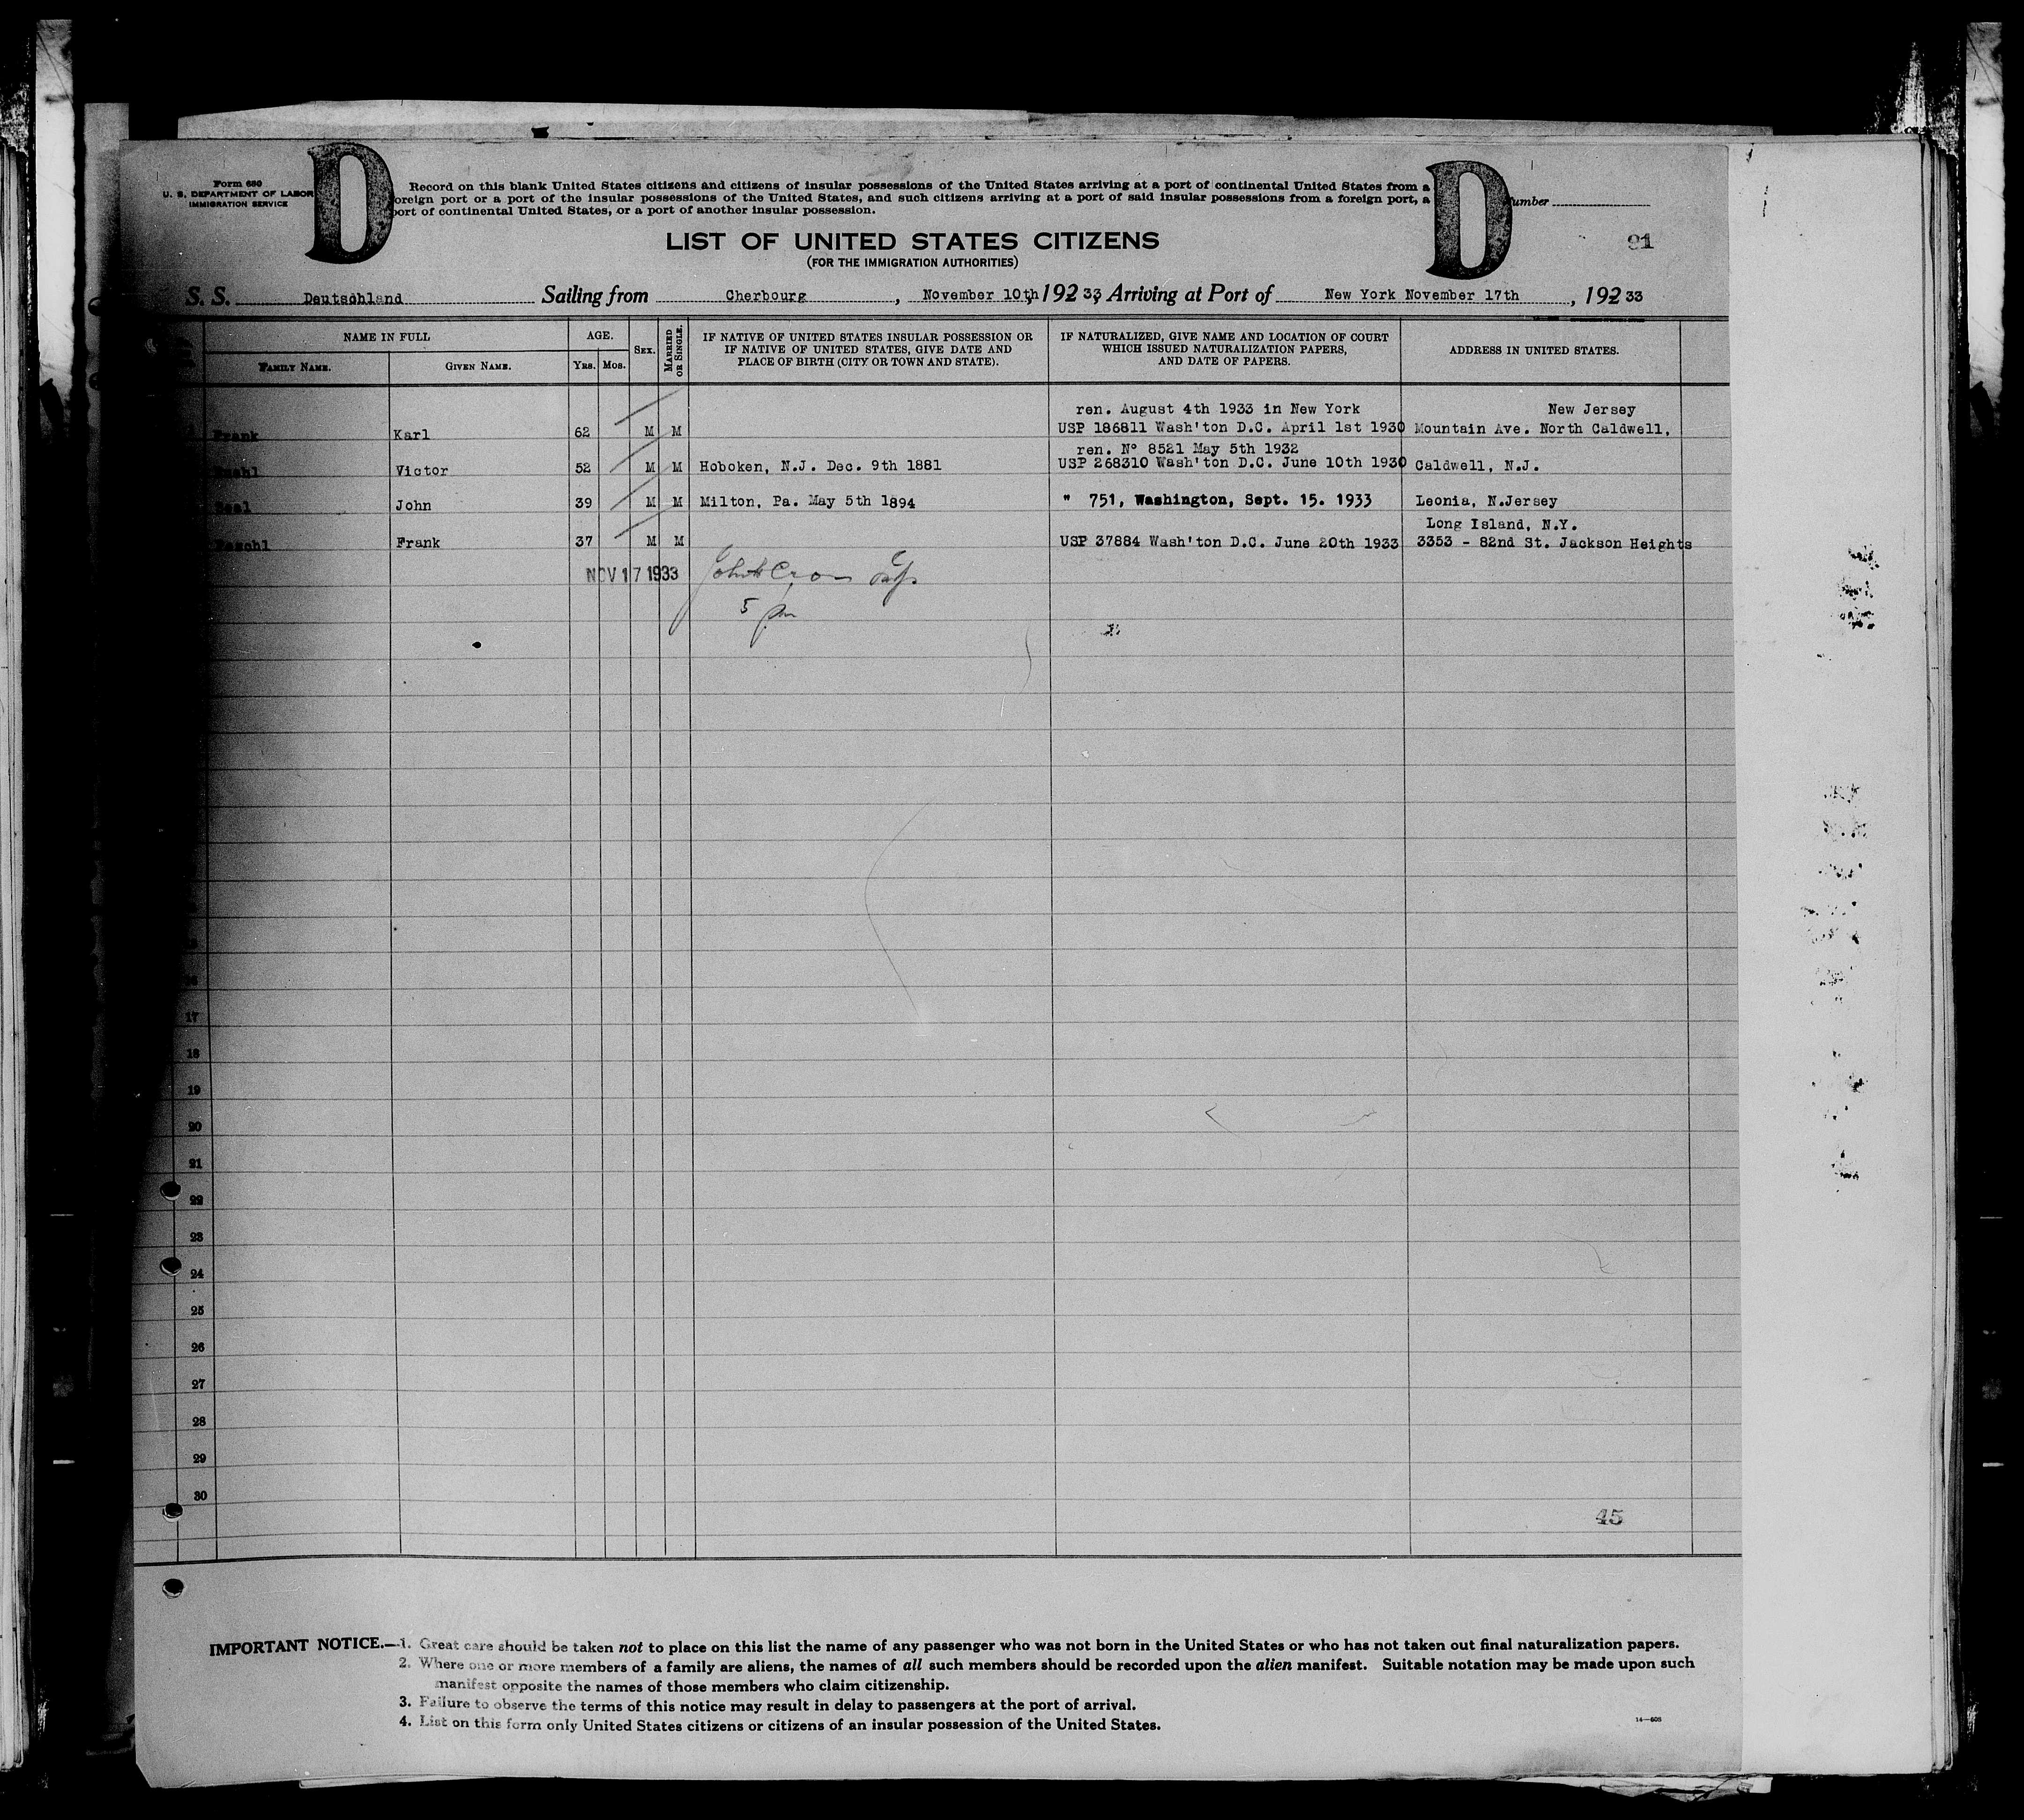 Form 630
U. S. DEPARTMENT OF LABOR
IMMIGRATION SERVICE
D
D
Record on this blank United States citizens and citizens of insular possessions of the United States arriving at a port of continental United States from a
oreign port or a port of the insular possessions of the United States, and such citizens arriving at a port of said insular possessions from a foreign port, a
port of continental United States, or a port of another insular possession.
umber
LIST OF UNITED STATES CITIZENS
(FOR THE IMMIGRATION AUTHORITIES)
91
S. S. Deutschland Sailing from Cherbourg, November 10th, 192 33, Arriving at Port of New York November 17th, 192 33
NAME IN FULL
AGE.
SEX.
MARRIED OR SINGLE.
IF NATIVE OF UNITED STATES INSULAR POSSESSION OR
IF NATIVE OF UNITED STATES, GIVE DATE AND
PLACE OF BIRTH (CITY OR TOWN AND STATE).
IF NATURALIZED, GIVE NAME AND LOCATION OF COURT
WHICH ISSUED NATURALIZATION PAPERS,
AND DATE OF PAPERS.
ADDRESS IN UNITED STATES.
FAMILY NAME. GIVEN NAME. YRS. MOS.
ren. August 4th 1933 in New York New Jersey
Frank Karl 62 M M USP 186811 Wash'ton D.C. April 1st 1930 Mountain Ave. North Caldwell,
ren. Nº 8521 May 5th 1932
Victor 52 M M Hoboken, N.J. Dec. 9th 1881 USP 268310 Wash'ton D.C. June 10th 1930 Caldwell, N.J.
John 39 M M Milton, Pa. May 5th 1894 " 751, Washington, Sept. 15. 1933 Leonia, N.Jersey
Long Island, N.Y.
Frank 37 M M USP 37884 Wash'ton D.C. June 20th 1933 3353 - 82nd St. Jackson Heights
NOV 17 1933
5 pm
17
18
19
20
21
22
23
24
25
26
27
28
29
30
45
IMPORTANT NOTICE.—1. Great care should be taken not to place on this list the name of any passenger who was not born in the United States or who has not taken out final naturalization papers.
2. Where one or more members of a family are aliens, the names of all such members should be recorded upon the alien manifest. Suitable notation may be made upon such
manifest opposite the names of those members who claim citizenship.
3. Failure to observe the terms of this notice may result in delay to passengers at the port of arrival.
4. List on this form only United States citizens or citizens of an insular possession of the United States.
14—608